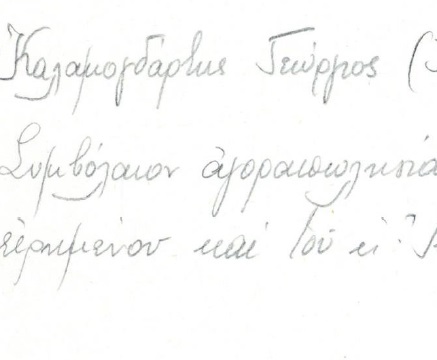 Καλαμογδάρτης Γεώργιος (
Συμβόλαιον ἀγοραπωλησία
εἰρημένου καί τοῦ κ.